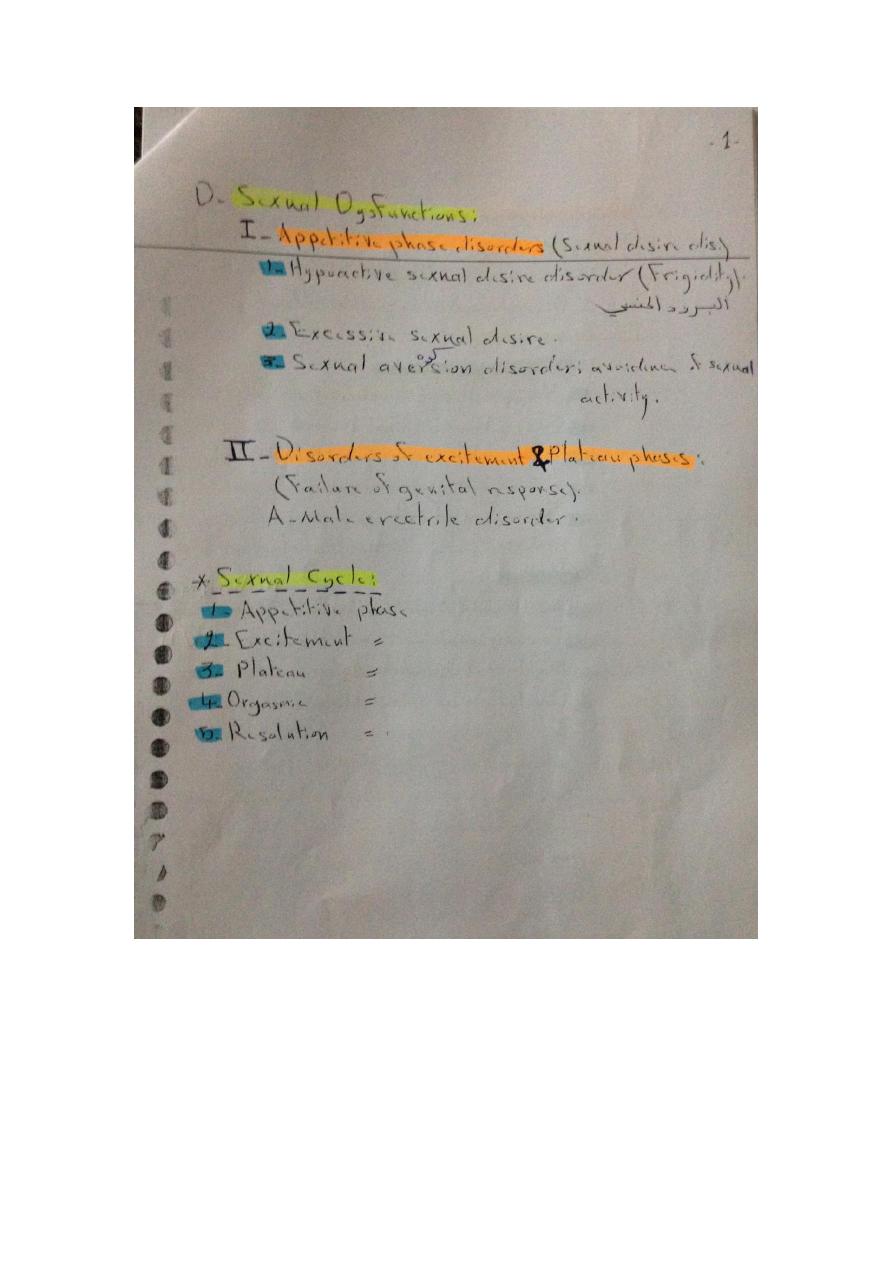 -1-
D- Sexual Dysfunctions:
I- Appetitive phase disorders (Sexual desire dis.)
1- Hypoactive sexual desire disorder (Frigidity).
البرود الجنسي
2. Excessive sexual desire.
كره
3- Sexual aversion disorder: avoidance of sexual
activity.
II- Disorders of excitement & Plateau phases:
(Failure of genital response).
A- Male erectrile disorder.
* Sexual Cycle:
1- Appetitive phase
2- Excitement =
3- Plateau =
4- Orgasmic =
5- Resolution =